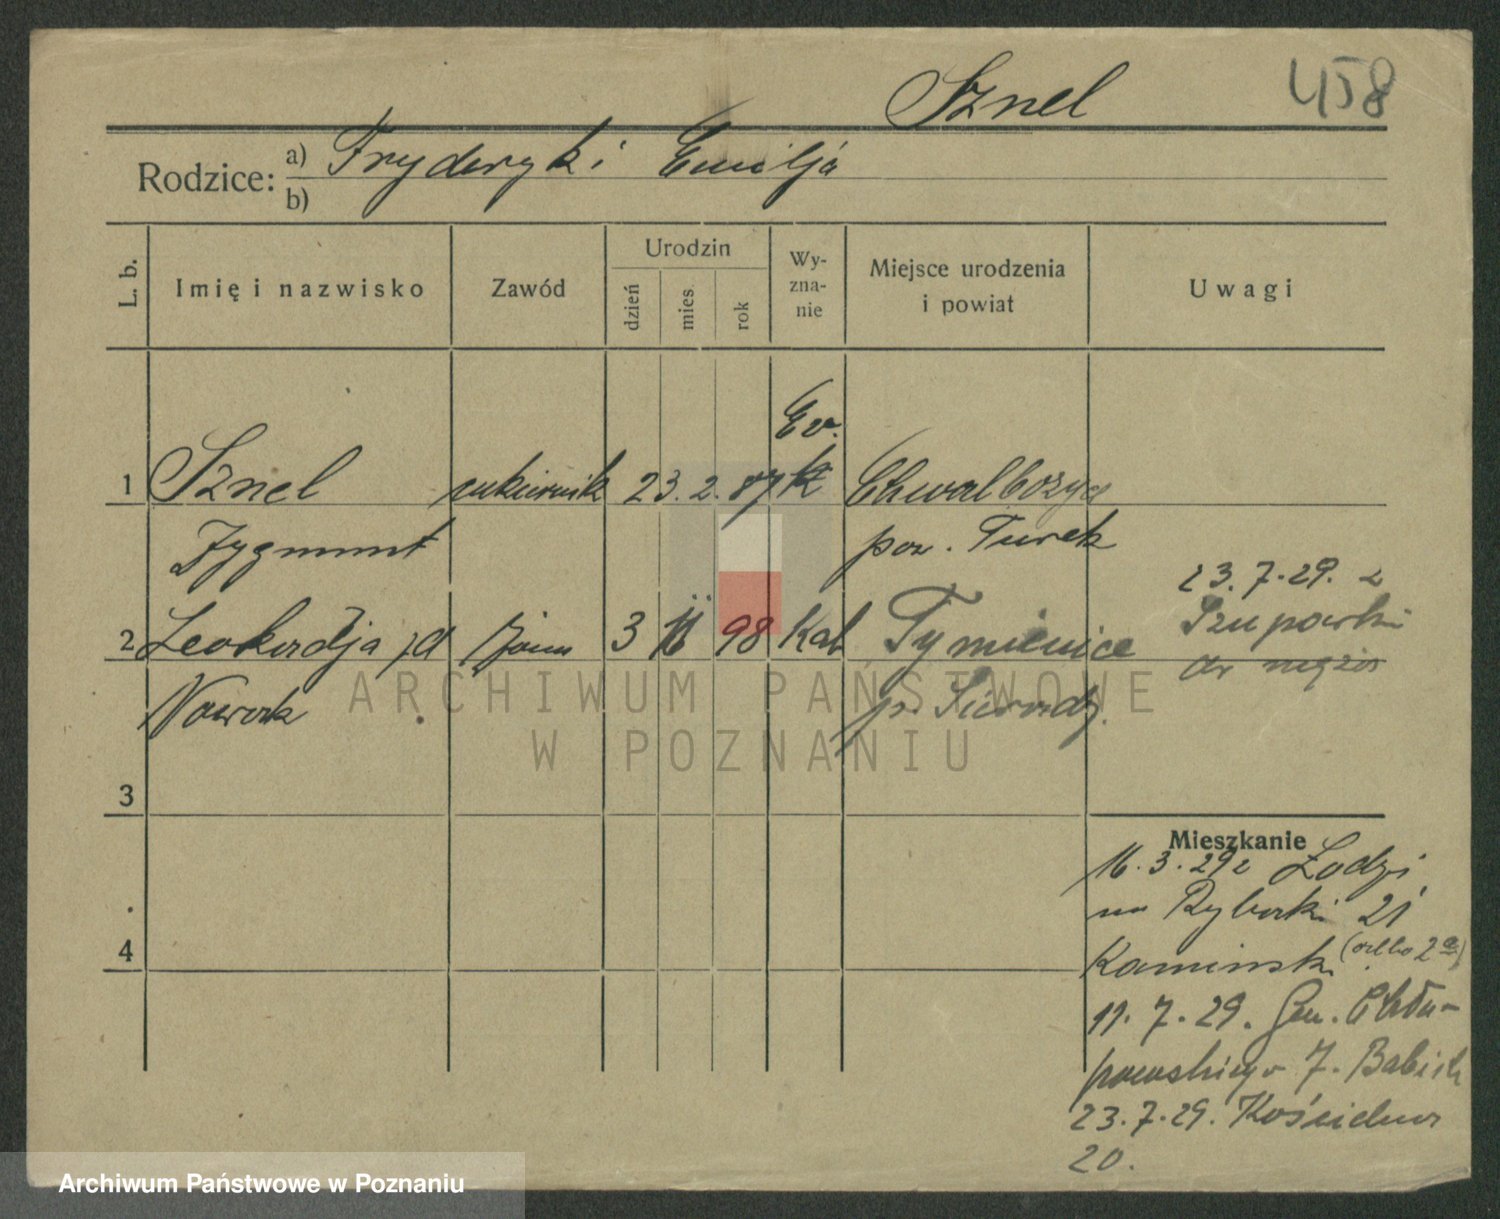 Sznel 458
Rodzice: a) Fryderyk i Emilja
b)
L. b. Imię i nazwisko Zawód Urodzin dzień mies rok Wyznanie Miejsce urodzenia i powiat Uwagi
Ev.
1 Sznel cukiernik 23. 2. 87 k Chwalborzyce
Zygmunt pow. Turek
23. 7. 29. z
2 Leokadja zd żona 3 11 98 Kat Tymienice
do męża
Nowak p. Sieradz.
3
Mieszkanie
16. 3. 29 z Łodzi
na Rybaki 21
4
Kamiński
19. 7. 29. Gen. Chłapowskiego 7. Babiak
23. 7. 29. Kościelna
20.
ARCHIWUM PAŃSTWOWE
W POZNANIU
Archiwum Państwowe w Poznaniu